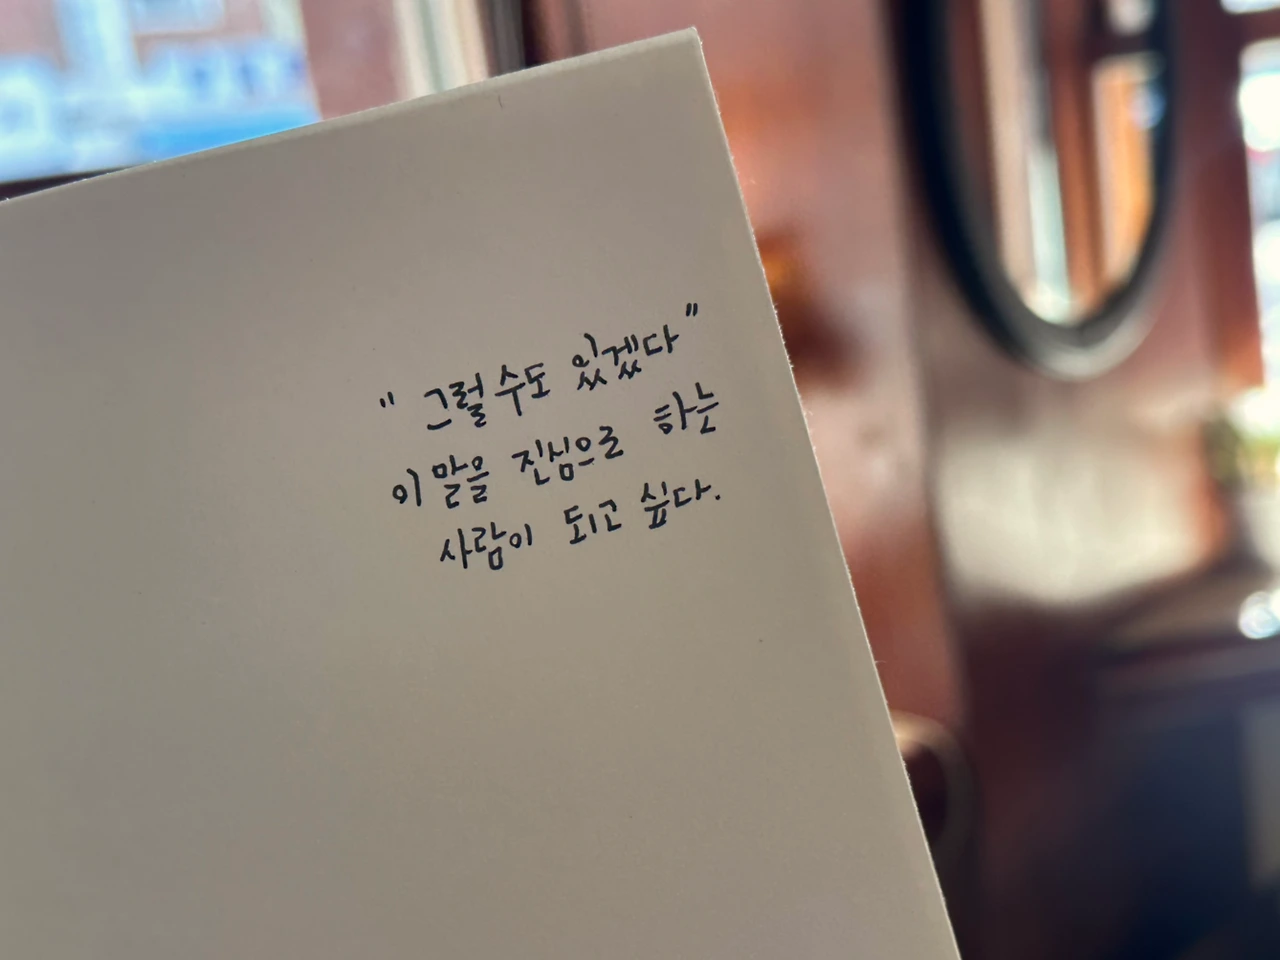 " 그럴 수도 있겠다"
이 말을 진심으로 하는
사람이 되고 싶다.